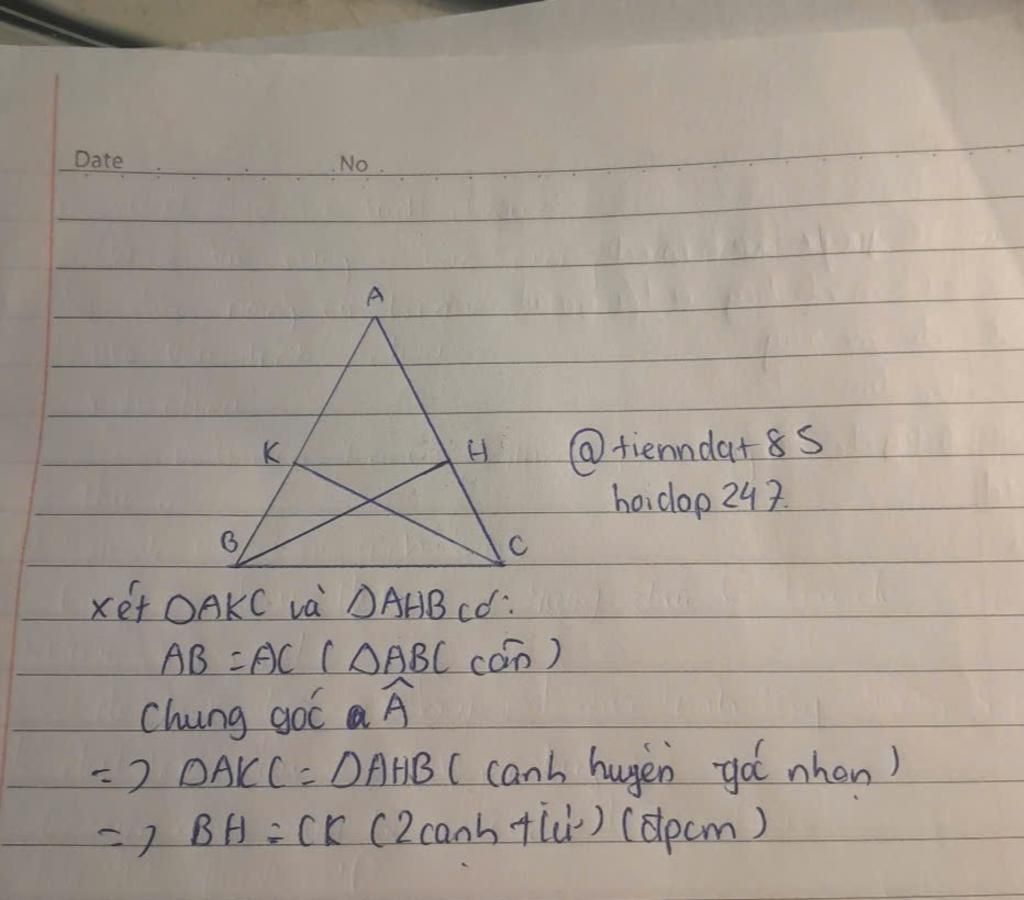 Date No
A
K H
@tienndat85
hoidap247.
B C
xét ΔAKC và ΔAHB có:
AB = AC ( ΔABC cân )
Chung góc Â
=> ΔAKC = ΔAHB ( canh huyền góc nhọn )
=> BH = CK (2 canh t/ứ) (đpcm)